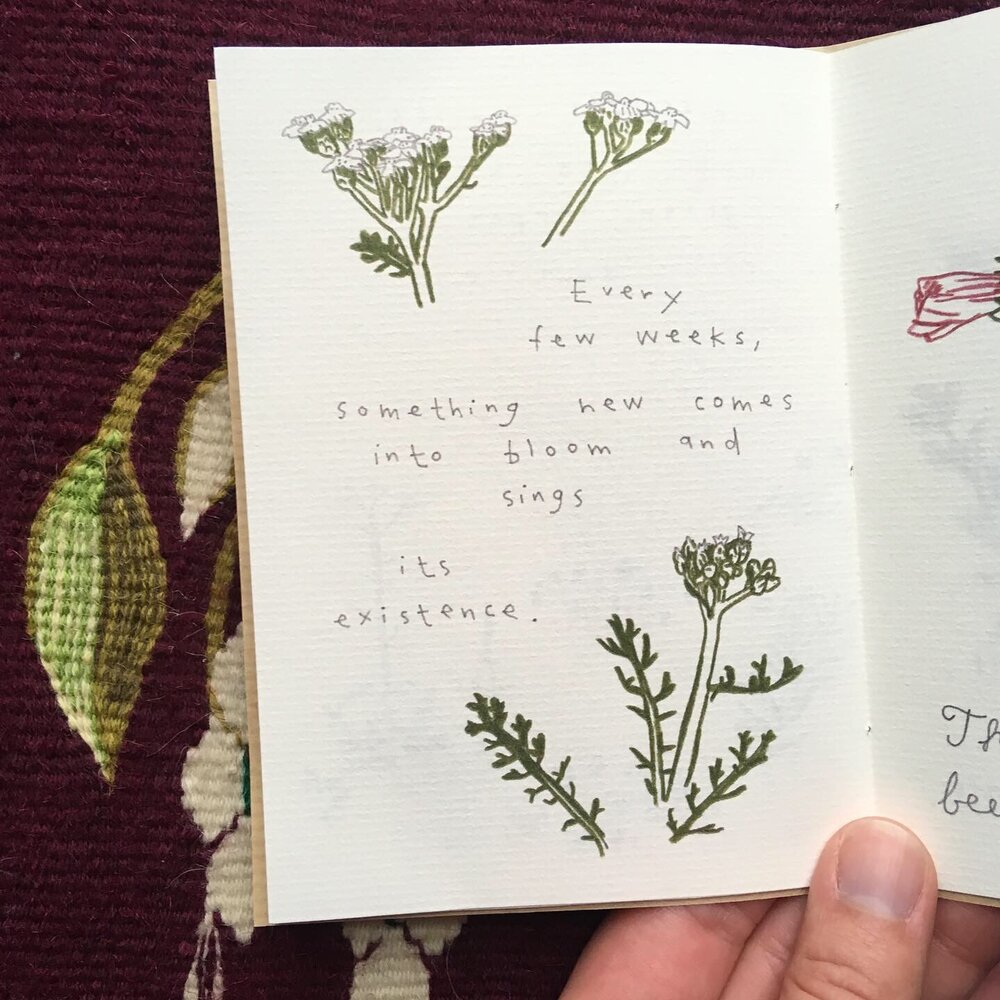 Every
few weeks,
something new comes
into bloom and
sings
its
existence.